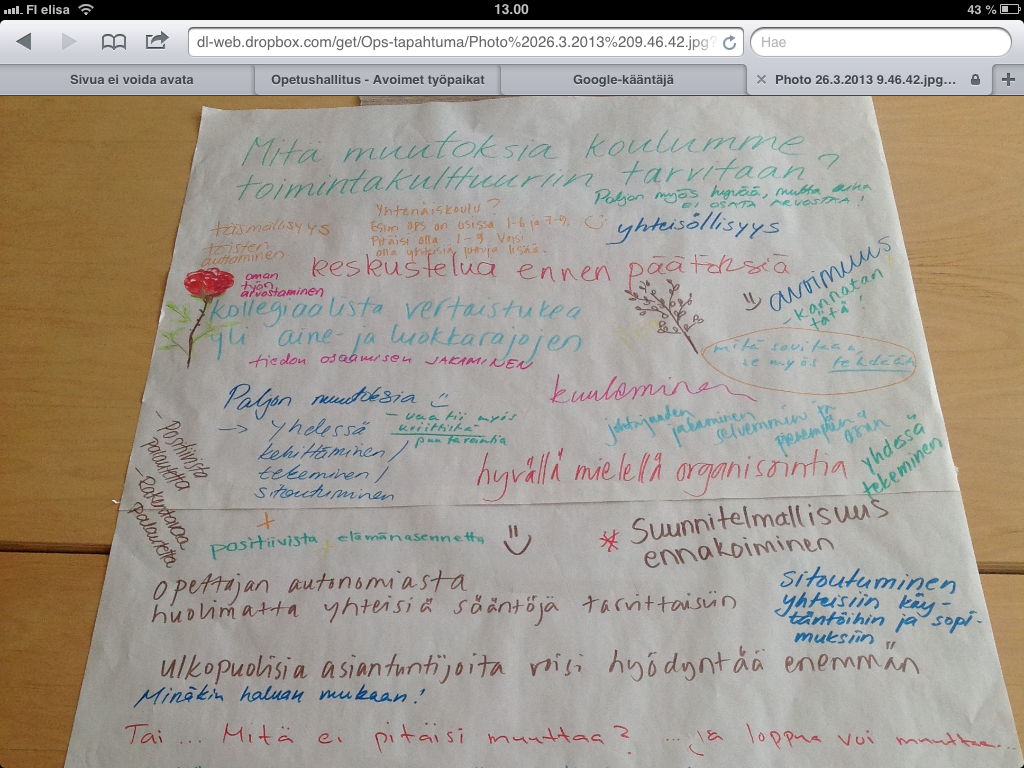 FI elisa
13.00
43 %
dl-web.dropbox.com/get/Ops-tapahtuma/Photo%2026.3.2013%209.46.42.jpg?
Hae
Sivua ei voida avata
Opetushallitus - Avoimet työpaikat
Google-kääntäjä
Photo 26.3.2013 9.46.42.jpg...
Mitä muutoksia koulumme
toimintakulttuuriin tarvitaan?
Paljon myös hyvää, mutta aina
EI OSATA ARVOSTAA!
Yhtenäiskoulu?
Esim OPS on osissa 1-6 ja 7-9.
Pitäisi olla 1-9. Voisi
olla yhteisiä juttuja lisää.
täsmällisyys
toisten
auttaminen
yhteisöllisyys
keskustelua ennen päätöksiä
avoimuus
- kannatan
tätä!
oman
työn
arvostaminen
kollegiaalista vertaistukea
yli aine- ja luokkarajojen
tiedon osaamisen JAKAMINEN
mitä sovitaan,
se myös tehdään
kuuleminen
Paljon muutoksia
→ yhdessä
kehittäminen/
tekeminen/
sitoutuminen
- vaatii myös
kriittistä
puntarointia
johtajuuden
jakaminen
selvemmin ja
yhdessä
tekeminen
hyvällä mielellä organisointia
- Positiivista
palautetta
- Rakentavaa
palautetta
+
positiivista elämänasennetta
* Suunnitelmallisuus
ennakoiminen
opettajan autonomiasta
huolimatta yhteisiä sääntöjä tarvittaisiin
Sitoutuminen
yhteisiin käy-
täntöihin ja sopi-
muksiin
ulkopuolisia asiantuntijoita voisi hyödyntää enemmän
Minäkin haluan mukaan!
Tai ... Mitä ei pitäisi muuttaa? ... ja loppua voi muuttaa...